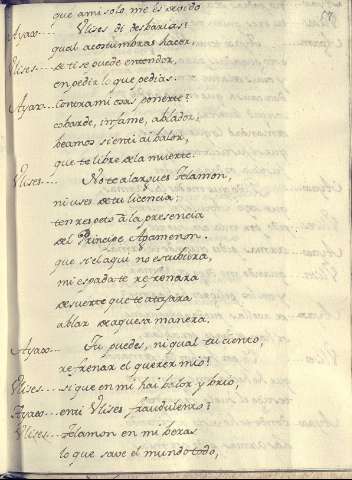 que ami solo me es devido
Ayax... Ulises di desbarias?
qual acostumbras hacer.
Ulises... de ti se puede entender,
en pedir lo que pedias.
Ayax... Contra mi osas ponerte?
cobarde, infame, ablador;
beamos si en ti ai balor,
que te libre de la muerte.
Ulises... No te alargues Telamon,
ni uses de tu licencia;
ten respeto à la presencia
del Principe Agamenon.
que si el aqui no estubiera,
mi espada te refrenara
de suerte que te atajara
ablar de aquesa manera.
Ayax... Tu puedes, ni qual tu ciento,
refrenar el querer mio?
Ulises... si que en mi hai balor y brio,
Ayax... en ti Ulises fraudulento?
Ulises... Telamon en mi beras
lo que save el mundo todo,